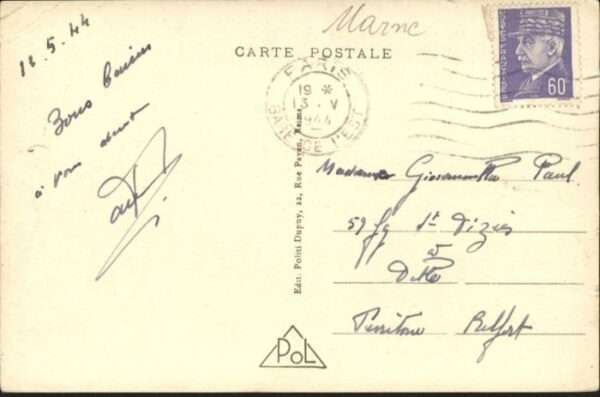 Marne
CARTE POSTALE
12.5.44
Bons baisers
à vous deux
PARIS
19 *
13 . V
1944
GARE DE L'EST
60
Edit. Polini Dupuy, 22, Rue Payen, Reims
Madame Paul
59 fg St Dizier
à
Delle
Territoire Belfort
PoL